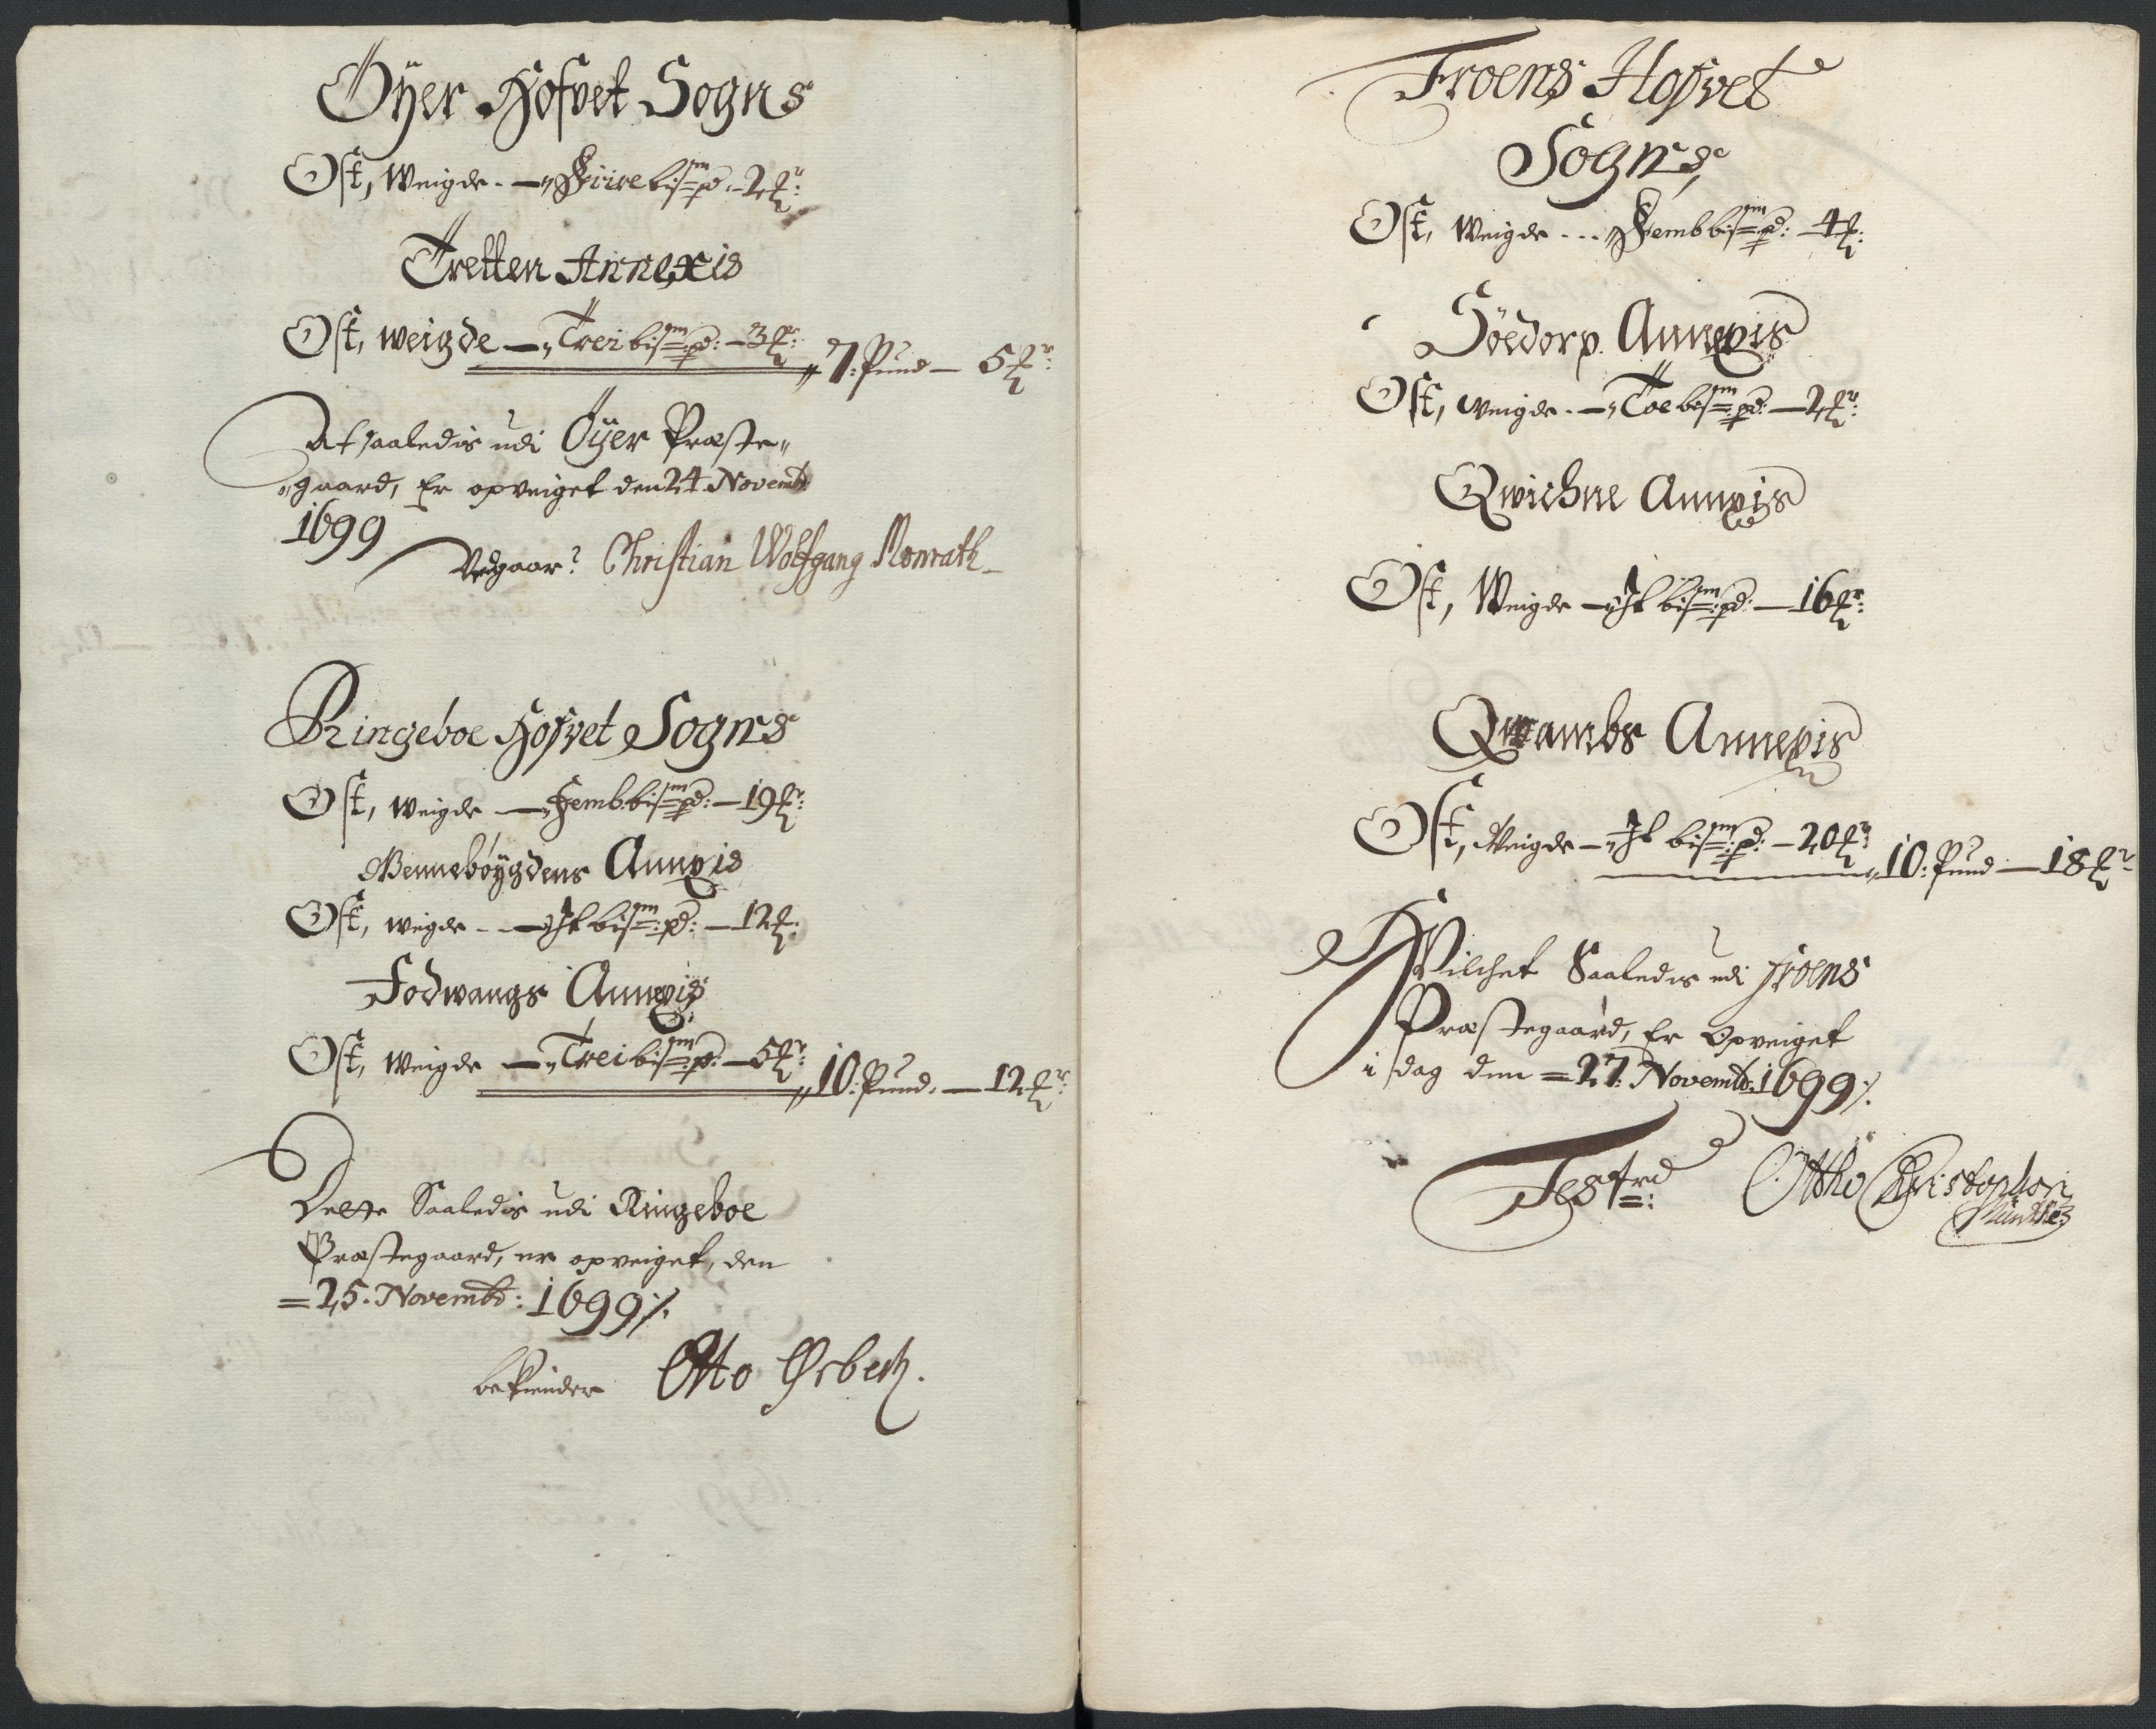 Öÿer Hofvet Sogns
Ost, Weigde. — „Fiire bism pd. — 2 ℔r:
Tretten Annexis
Ost, weigde — „Trei bism: pd: — 3 ℔r:
„7: Pund — 5 ℔r:
At saaledis udi Öÿer Præste„
„gaard, Er opveiget den 24 Novemb:
1699
Vedgaar? Christian Wolfgang Monrath
Ringeboe Hofvet Sogns
Ost, Weigde — „Femb. bism pd: — 19 ℔r:
Vennebøÿgdens Annexis
Ost, weigde - — „It bism: pd: — 12 ℔:
Fodwangs Annexis
Ost, Weigde — „Trei bism: pd: — 5 ℔r:
„10: Pund. — 12 ℔r:
Dette Saaledis udi Ringeboe
Præstegaard, er opveiget, den
= 25. Novembr: 1699 ⁒
bekiender Otto Ørbech.
Froens Hofvet
Sogns,
Ost, Weigde ... „Femb bism pd: — 4 ℔:
Söedorp. Annexis
Ost, weigde. — „Toe bism: pd: — 2 ℔r:
Qwichne Annexis
Ost, Weigde — „It bism: pd: — 16 ℔r:
Qwambs Annexis
Ost, Weigde — „It bism: pd: — 20 ℔r:
„10: Pund — 18 ℔r
Hvilchet Saaledis udi Froens
Præstegaard, Er Opveiget
i dag den = 27: Novemb: 1699 ⁒
Testrd: Ottho Christophori
Münthe